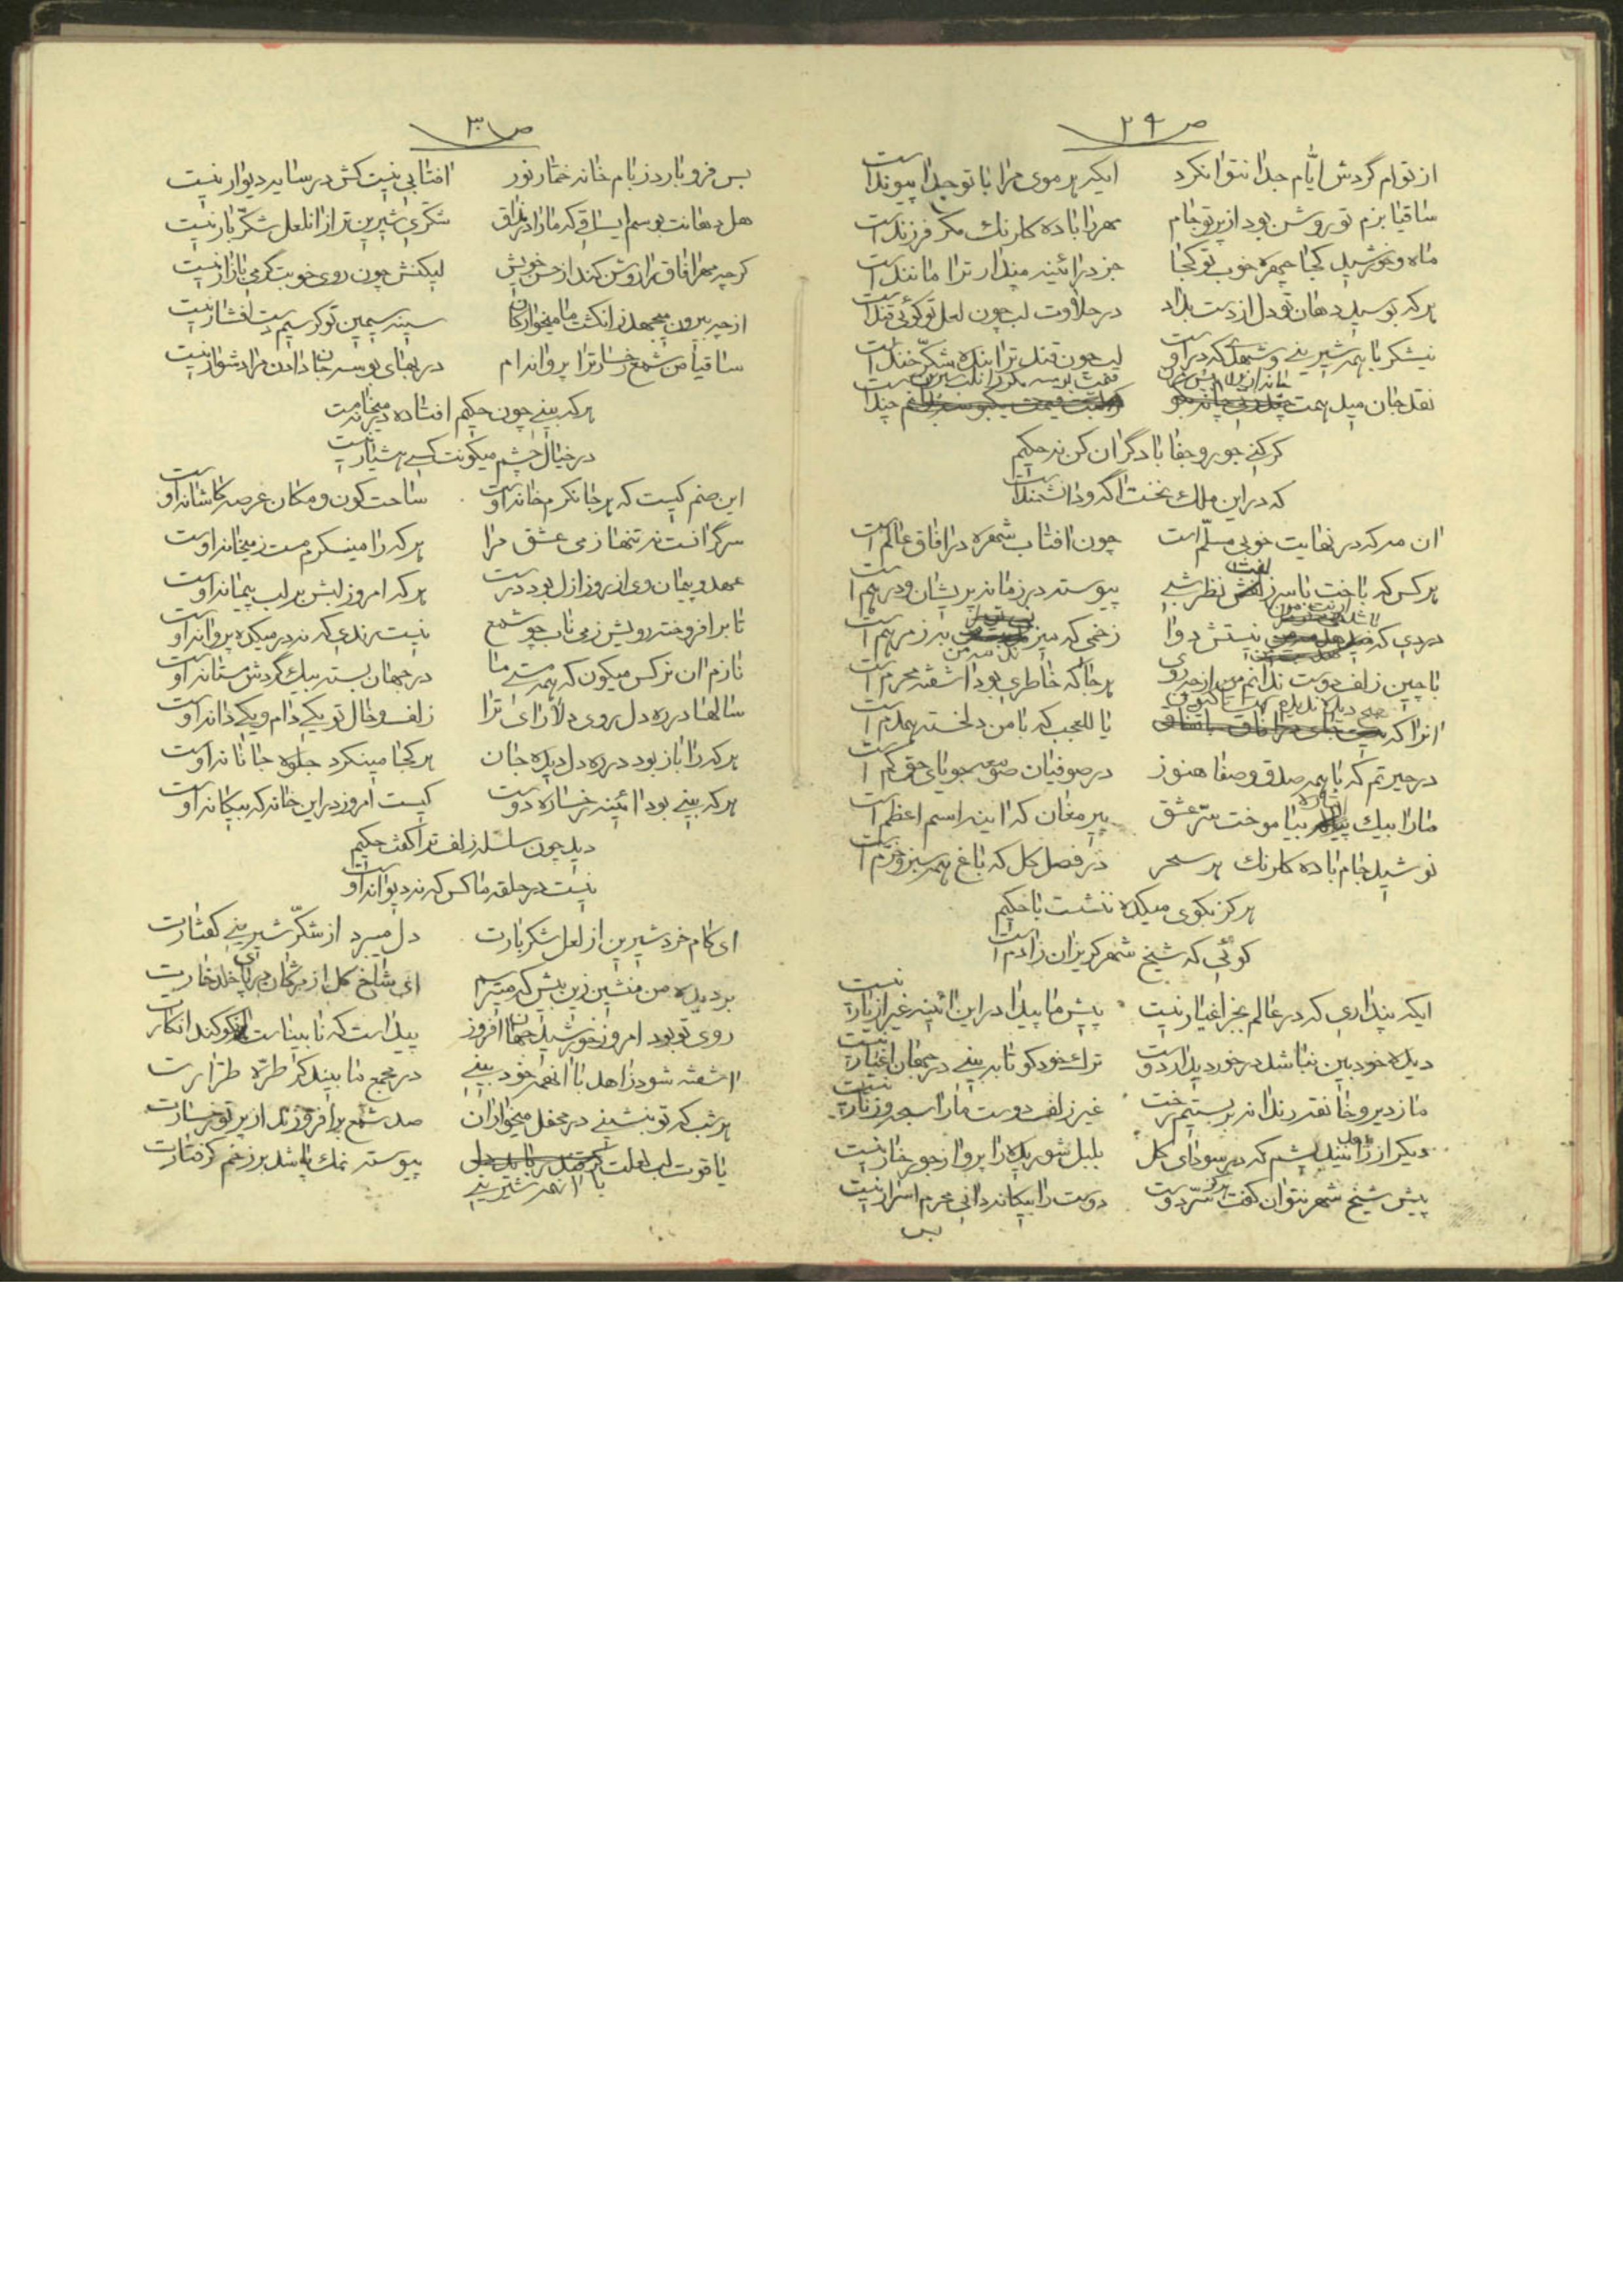 ص ۲۹
از توام گردش ایّام جدا نتوانکرد ایکه هر موی مرا با تو جدا پیوند است
ساقیا بزم تو روشن بود از پرتو جام مهر را باده کلرنك مکر فرزند است
ماه و خورشید کجا چهره خوب تو کجا جز در ائینه مپندار ترا مانند است
هرکه بوسید دهان تو دل از دست بداد در حلاوت لب چون لعل تو کوئی قند است
نیشکر با همه شیرینی و شهدیکه در اوست لب چون قند ترا بنده شکّر خند است
نقد جان میل همت
کر کنی جور و جفا با دگران کن نه حکیم
که در این ملك سخت اکه و دانشمند است
ان مه که در نهایت خوبی مسلّم است چون افتاب شهره در افاق عالم است
هر کس که باخت با سر زلفش نظر شبی پیوسته در زمانه پریشان و درهم است
دردی که نیستش دوا زخمی که به ز مرهم است
با چین زلف دوست ندانم من از چه روی هر جا که خاطری بود اشفته محرم است
انرا که یا للعجب که با من دلخسته همدم است
در حیرتم که با همه صدق و صفا هنوز در صوفیان صومعه جویای حق کم است
ما را بیك بیاموخت سرّ عشق پیر مغان که اینه اسم اعظم است
نوشید جام باده کلرنك هر سحر در فصل کل که باغ همه سبز و خرّم است
هرکز بکوی میکده ننشست با حکیم
کوئی که شیخ شهر کریزان ز ادم است
ایکه پنداری که در عالم بجز اغیار نیست پیش ما پیدا در این ائینه غیر از یار نیست
دیده خود بین نباشد در خور دیدار دوست ترك خود کو تا نه بینی در جهان اغیار نیست
ما ز دیر و خانقه رندانه بر بستیم رخت غیر زلف دوست ما را سبحه و زنار نیست
دیکر از زاهد نیندیشم که در سودای کل بلبل شوریده را پروا ز جور خار نیست
پیش شیخ شهر نتوان کفت هرکز سرّ دوست دوست را بیکانه دانی محرم اسرار نیست
بس
ص ۳۰
بس فرو بارد ز بام خانه خمّار نور افتابی نیست کش در سایه دیوار نیست
هل دهانت بوسم ایساقی که ما را در مذاق شکّری شیرین تر از ان لعل شکّر بار نیست
کرچه مهر افاق را روشن کند از حسن خویش لیکنش چون روی خوبت کرمی بازار نیست
از چه بیرون میجهد ز انکشت ما میخوارکان سینه سیمین تو کر سیم دست افشار نیست
ساقیا من شمع رخسار ترا پروانه ام در بهای بوسه جان دادن مرا دشوار نیست
هرکه بینی چون حکیم افتاده در میخانه مست
در خیال چشم میکونت کسی هشیار نیست
این صنم کیست که هر جا نکرم خانه اوست ساحت کون و مکان عرصه کاشانه اوست
سرگرانست نه تنها ز می عشق مرا هر که را مینکرم مست ز میخانه اوست
عهد و پیمان وی از روز ازل بود درست هر که امروز لبش بر لب پیمانه اوست
تا بر افروخته رویش ز می ناب چو شمع نیست رندی که نه در میکده پروانه اوست
نازم ان نرکس میکون که همه مستی ما در جهان بسته بیك گردش مستانه اوست
سالها در ره دل روی دلارای ترا زلف و خال تو یکی دام و یکی دانه اوست
هر که را باز بود در ره دل دیده جان هر کجا مینکرد جلوه جانانه اوست
هر که بینی بود ائینه رخساره دوست کیست امروز در این خانه که بیکانه اوست
دید چون سلسله زلف ترا کفت حکیم
نیست در حلقه ما کس که نه دیوانه اوست
ای کام خرد شیرین از لعل شکر بارت دل میبرد از شکّر شیرینی کفتارت
بر دیده من منشین زین پیش که میترسم ای شاخ کل از مژکان در پای خلد خارت
روی تو بود امروز خورشید جهان افروز پیداست که نابیناست انکو کند انکارت
اشفته شود زاهد با انهمه خود بینی در مجمع ما بیند کر طرّه طرّارت
هر شب که تو بنشینی در محفل میخواران صد شمع بر افروزند از پرتو رخسارت
یاقوت لب لعلت با انهمه شیرینی پیوسته نمك پاشد بر زخم کرفتارت